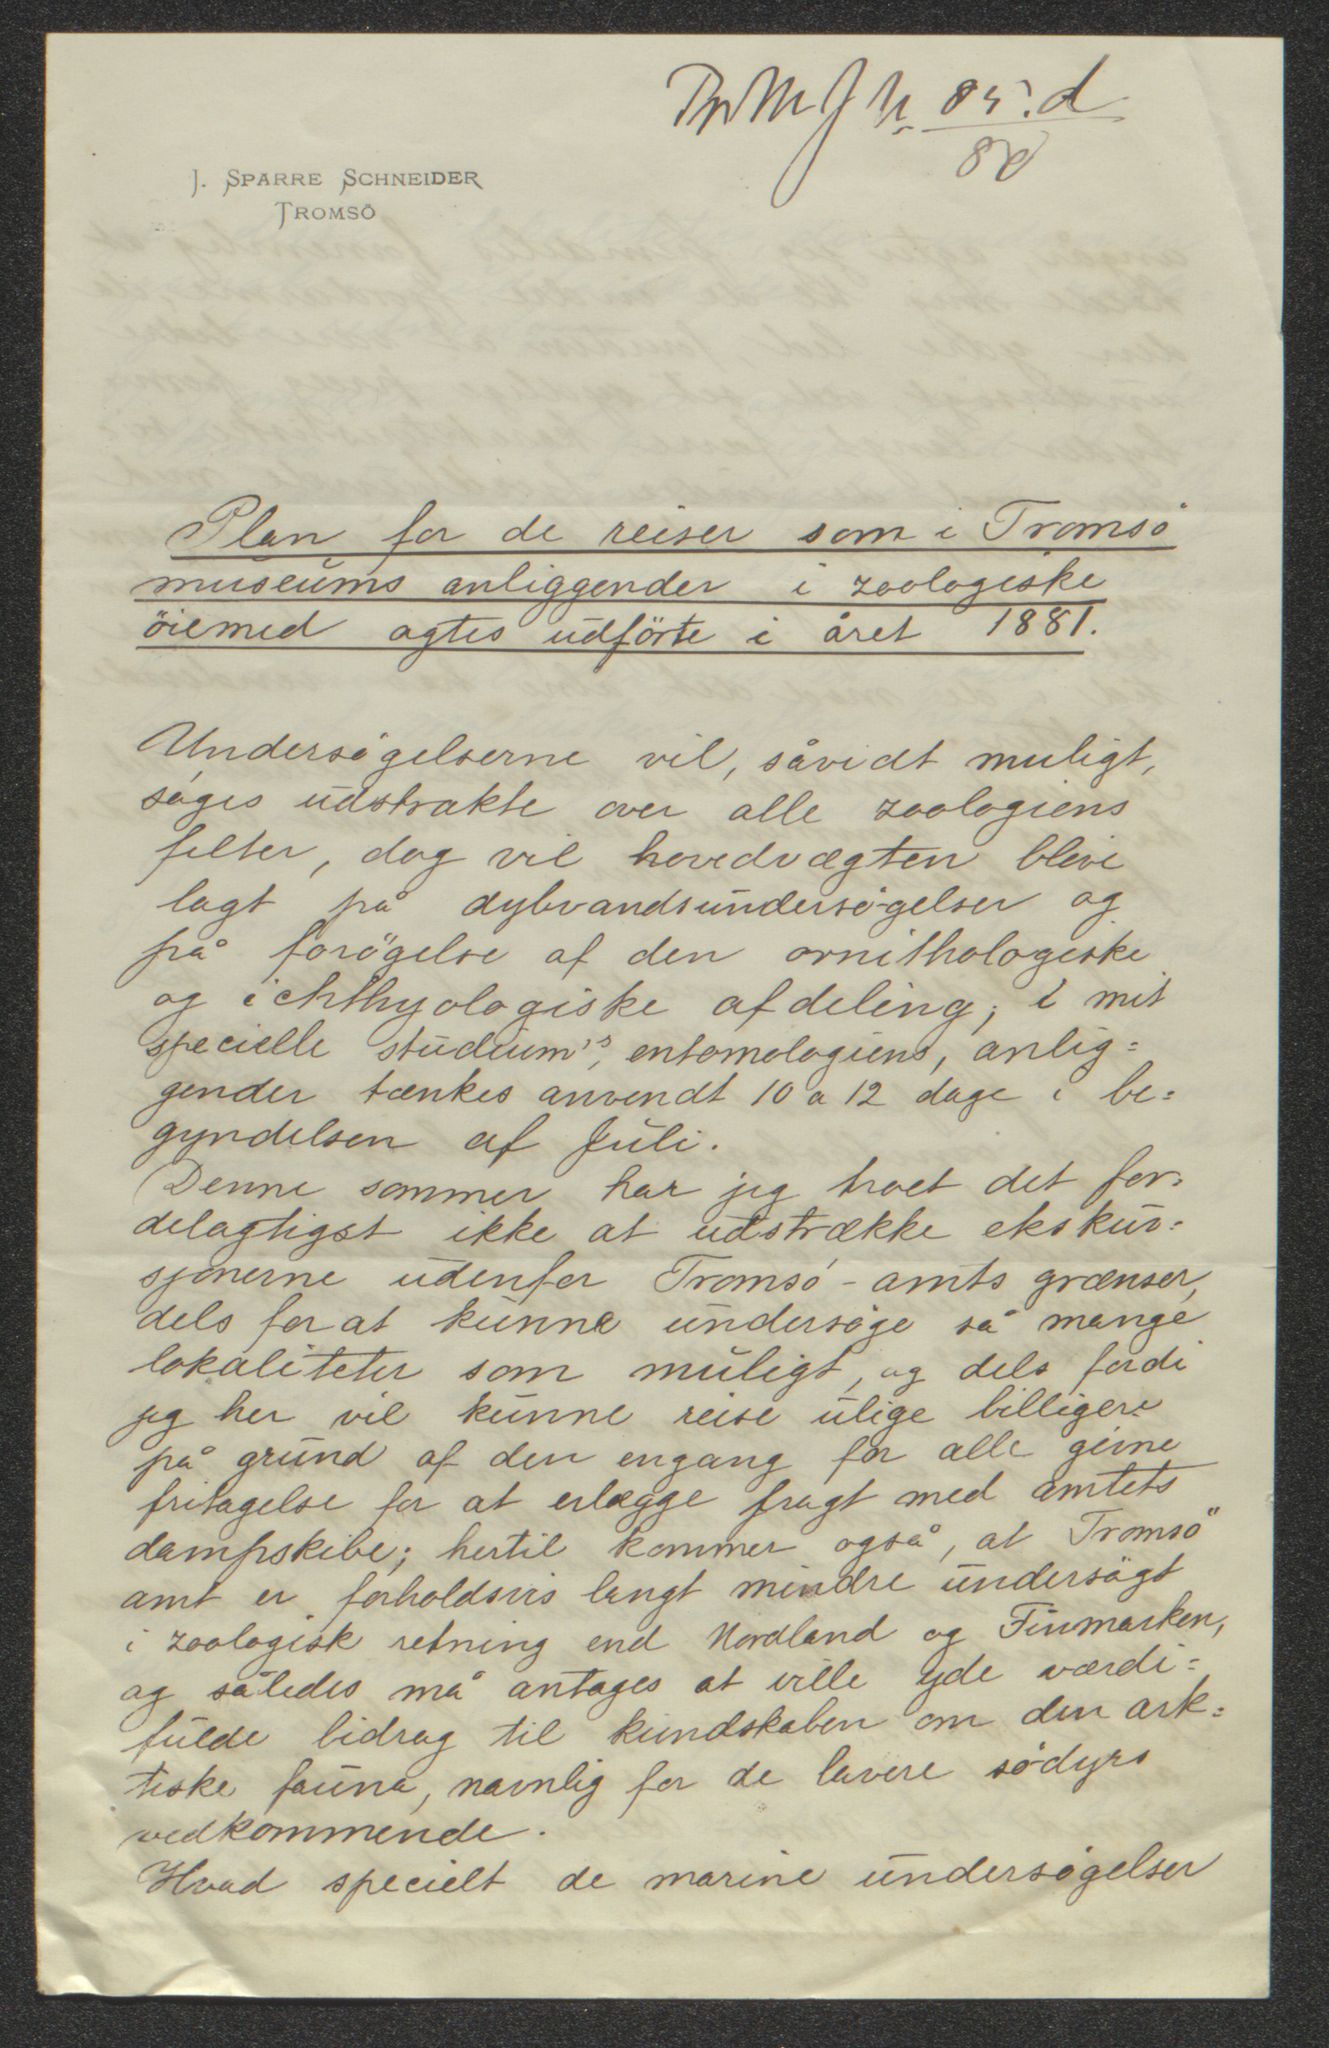 85.d
80
J. SPARRE SCHNEIDER
TROMSÖ
Plan for de reiser som i Tromsö
museums anliggender i zoologiske
öiemed agtes udförte i året 1881.
Undersögelserne vil, såvidt muligt,
söges udstrakte over alle zoologiens
felter, dog vil hovedvægten blive
lagt på dybvandsundersögelser og
på forögelse af den ornithologiske
og ichthyologiske afdeling; i mit
specielle studium's, entomologiens, anlig=
gender tænkes anvendt 10 a 12 dage i be=
gyndelsen af Juli.
Denne sommer har jeg troet det for=
delagtigst ikke at udstrække ekskur=
sjonerne udenfor Tromsö-amts grænser,
dels for at kunne undersöge så mange
lokaliteter som muligt, og dels fordi
jeg her vil kunne reise ulige billigere
på grund af den engang for alle givne
fritagelse for at erlægge fragt med amtets
dampskibe; hertil kommer også, at Tromsö
amt er forholdsvis langt mindre undersögt
i zoologisk retning end Nordland og Finmarken,
og således må antages at ville yde værdi=
fulde bidrag til kundskaben om den ark=
tiske fauna, navnlig for de lavere södyrs
vedkommende.
Hvad specielt de marine undersögelser